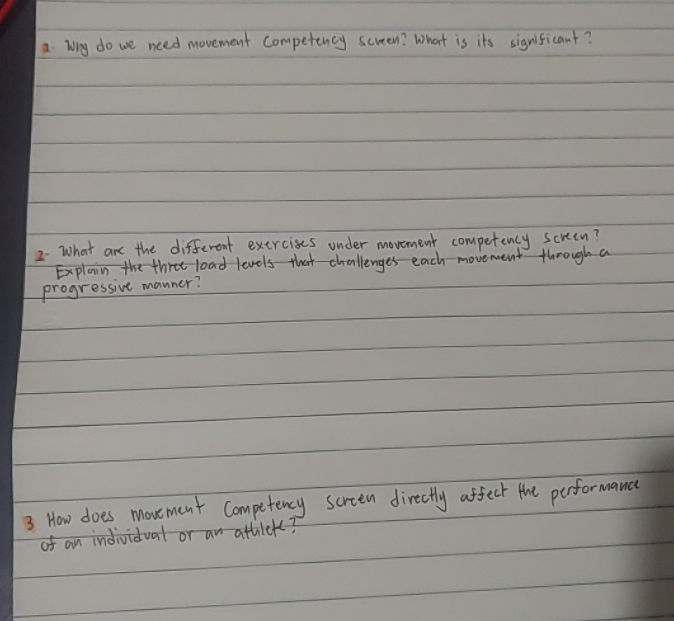 a. Why do we need movement Competency screen? What is its significant?
2- What are the different exercises under movement competency screen?
Explain the three load levels that challenges each movement through a
progressive manner?
3 How does movement Competency screen directly affect the performance
of an individual or an athlete?